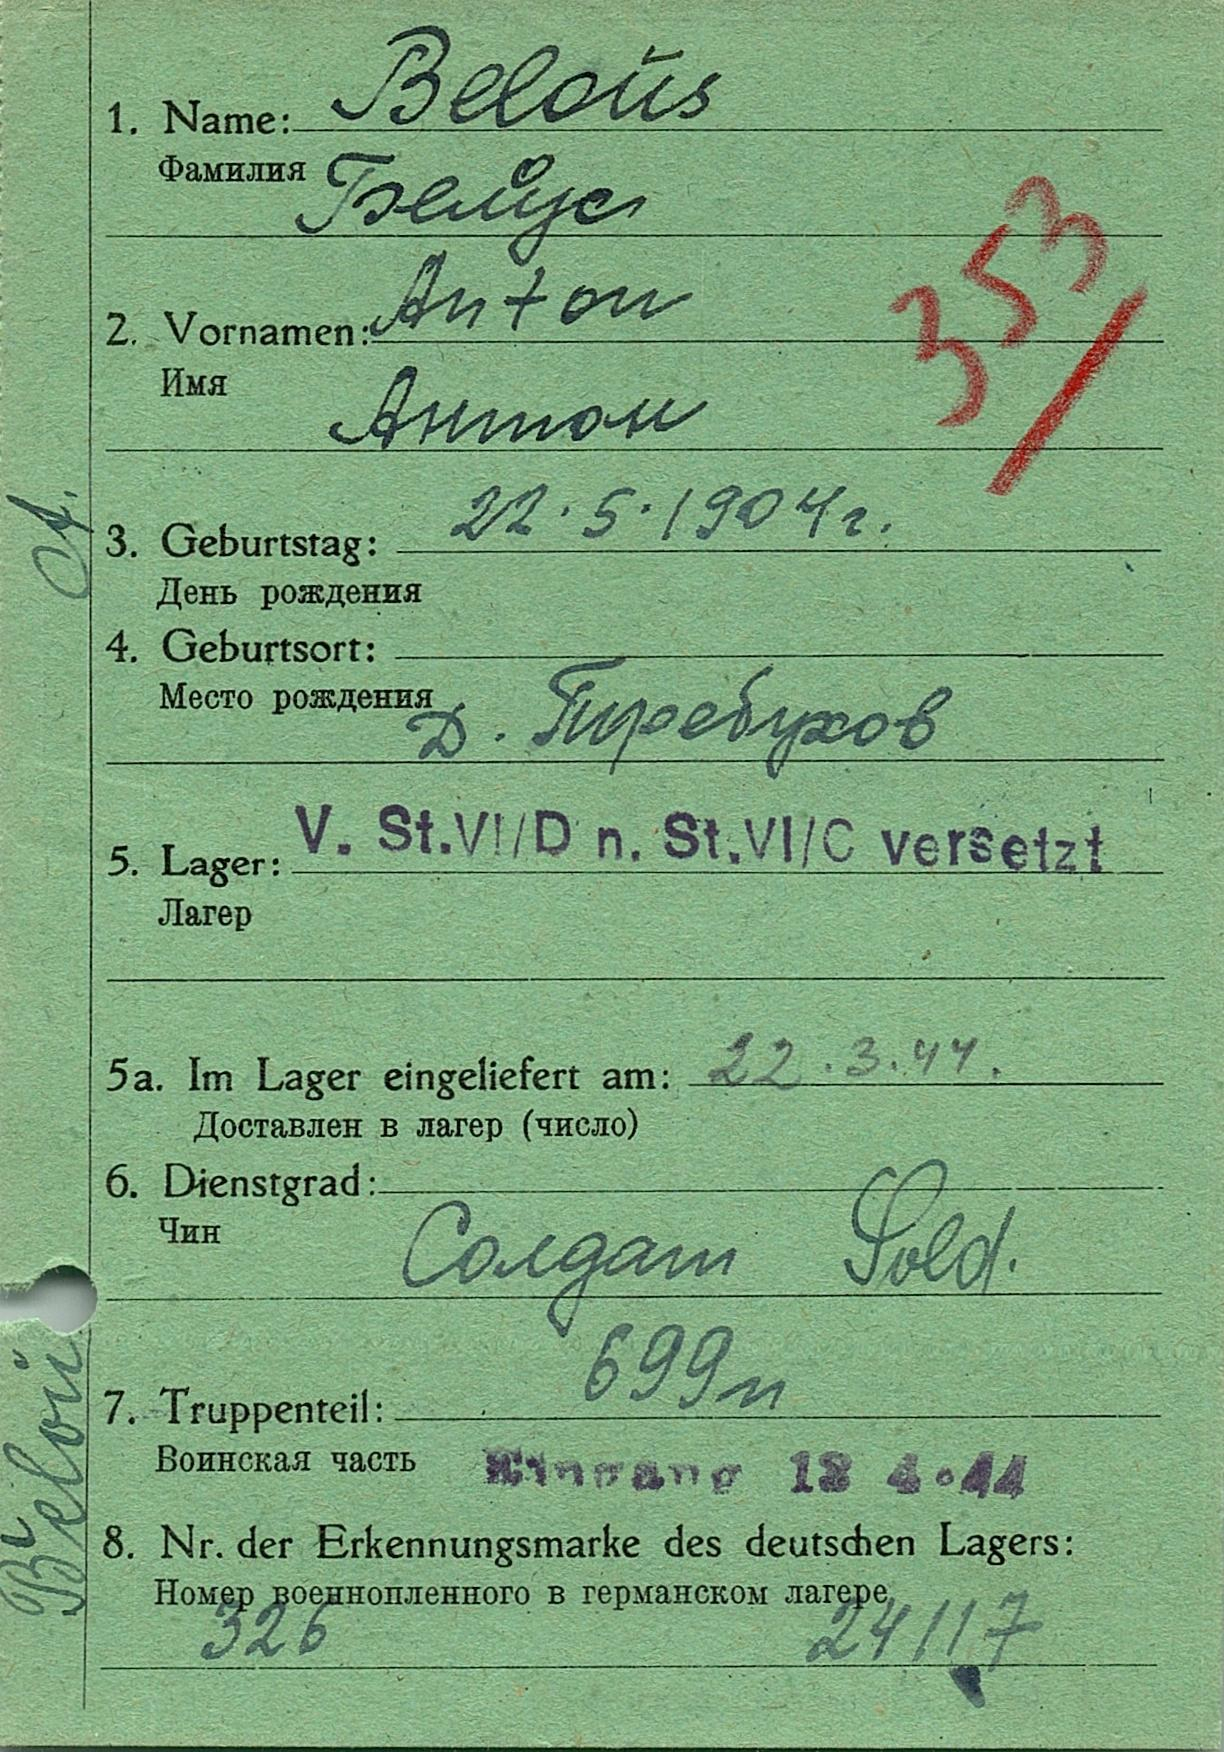 1. Name: Beloŭs
Фамилия Белоус
353/
2. Vornamen: Anton
Имя
Антон
3. Geburtstag: 22.5.1904г.
День рождения
4. Geburtsort:
Место рождения
Д. Требухов
5. Lager: V. St.VI/D n. St.VI/C versetzt
Лагер
5a. Im Lager eingeliefert am: 22.3.44.
Доставлен в лагер (число)
6. Dienstgrad:
Чин
Солдат Sold.
7. Truppenteil: 699п
Воинская часть Eingang 12 4.44
8. Nr. der Erkennungsmarke des deutschen Lagers:
Номер военнопленного в германском лагере
326 24117
A.